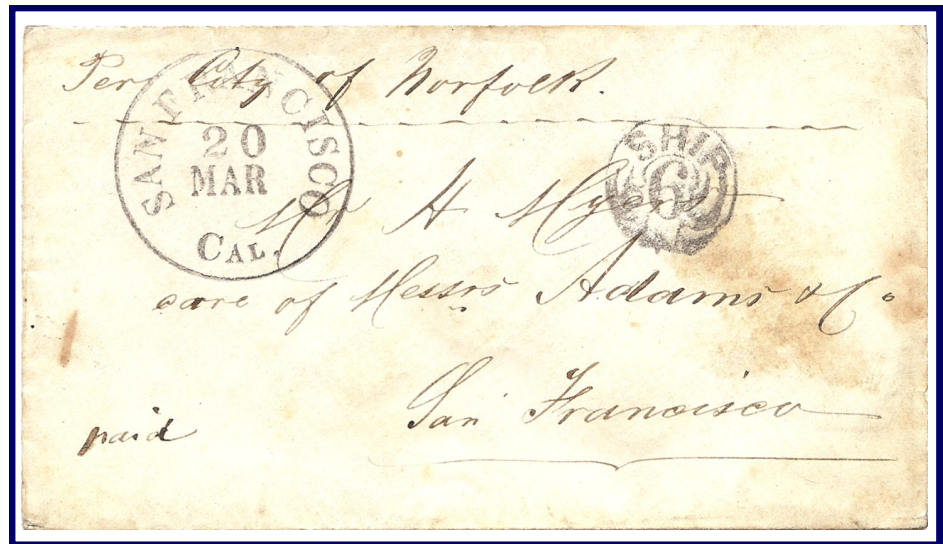 Per City of Norfolk.
SAN FRANCISCO
20
MAR
CAL.
SHIP
6
Mr A Myers
care of Messrs Adams & Co
San Francisco
paid